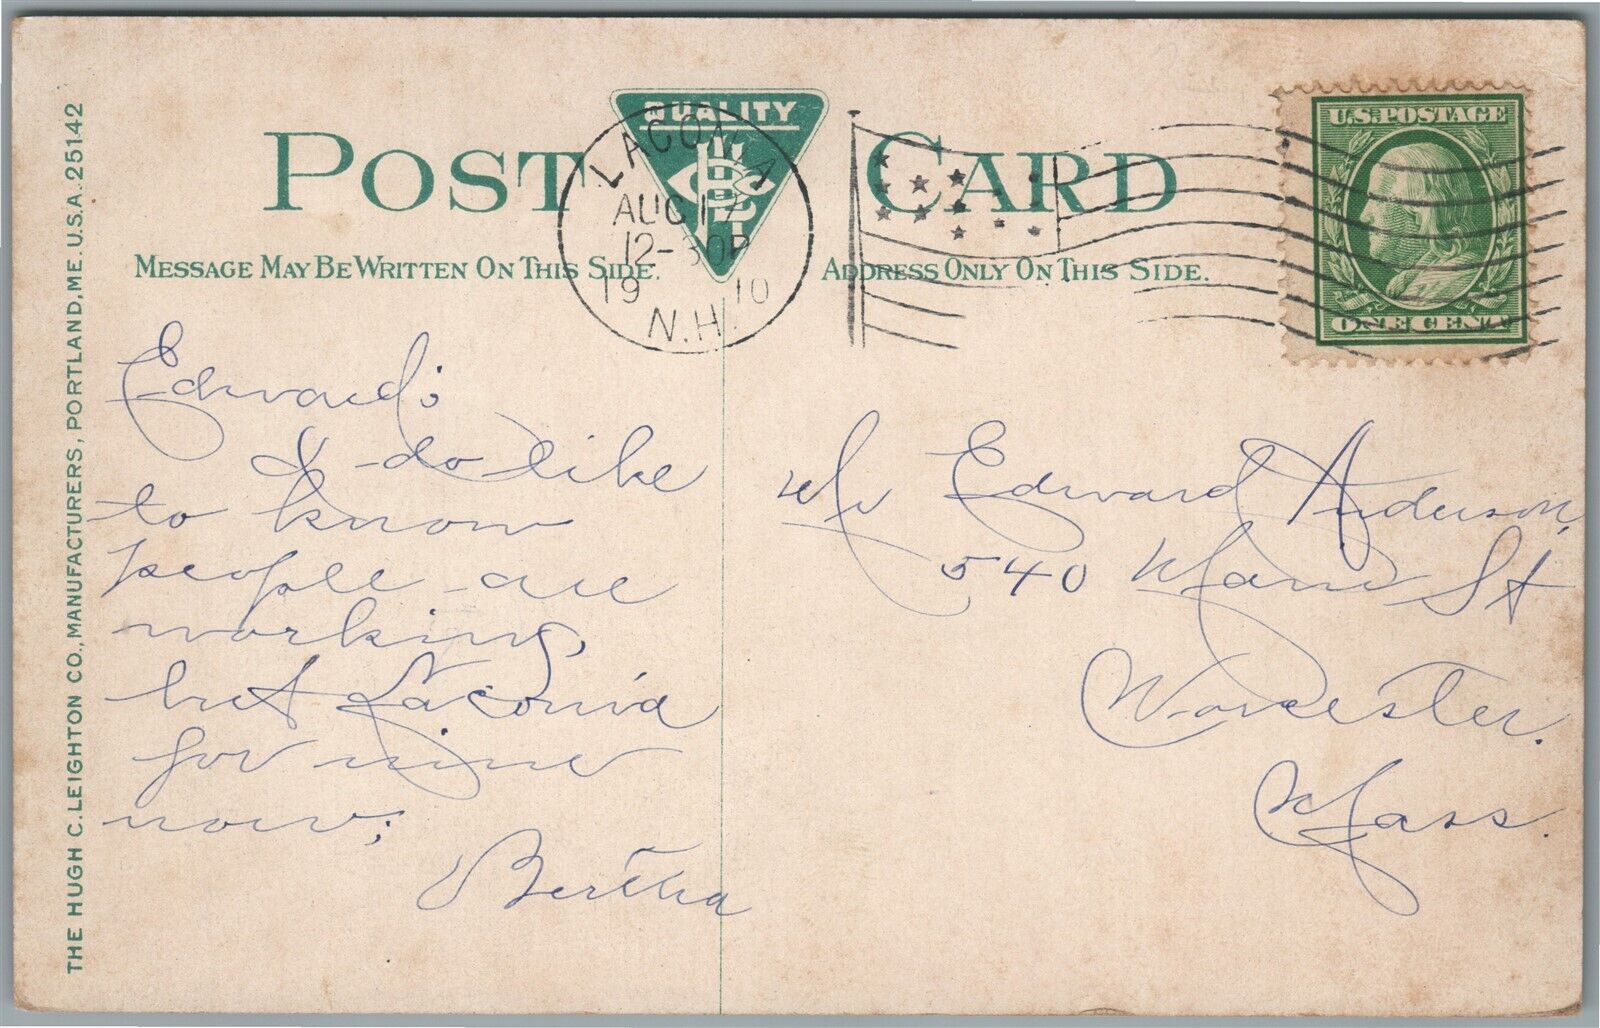 POST CARD
QUALITY
LACONIA
AUG 17
12-30P
19 10
N.H.
U.S. POSTAGE
ONE CENT
MESSAGE MAY BE WRITTEN ON THIS SIDE.
ADDRESS ONLY ON THIS SIDE.
THE HUGH C. LEIGHTON CO., MANUFACTURERS, PORTLAND, ME. U.S.A. 25142
Edward:
I do like
to know
people are
working,
but Laconia
for mine
now;
Bertha
Mr Edward Anderson,
540 Main St
Worcester.
Mass.